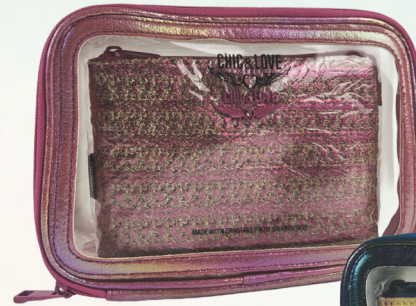 CHIC & LOVE
CHIC & LOVE
MADE WITH CRYSTALS FROM SWAROVSKI®